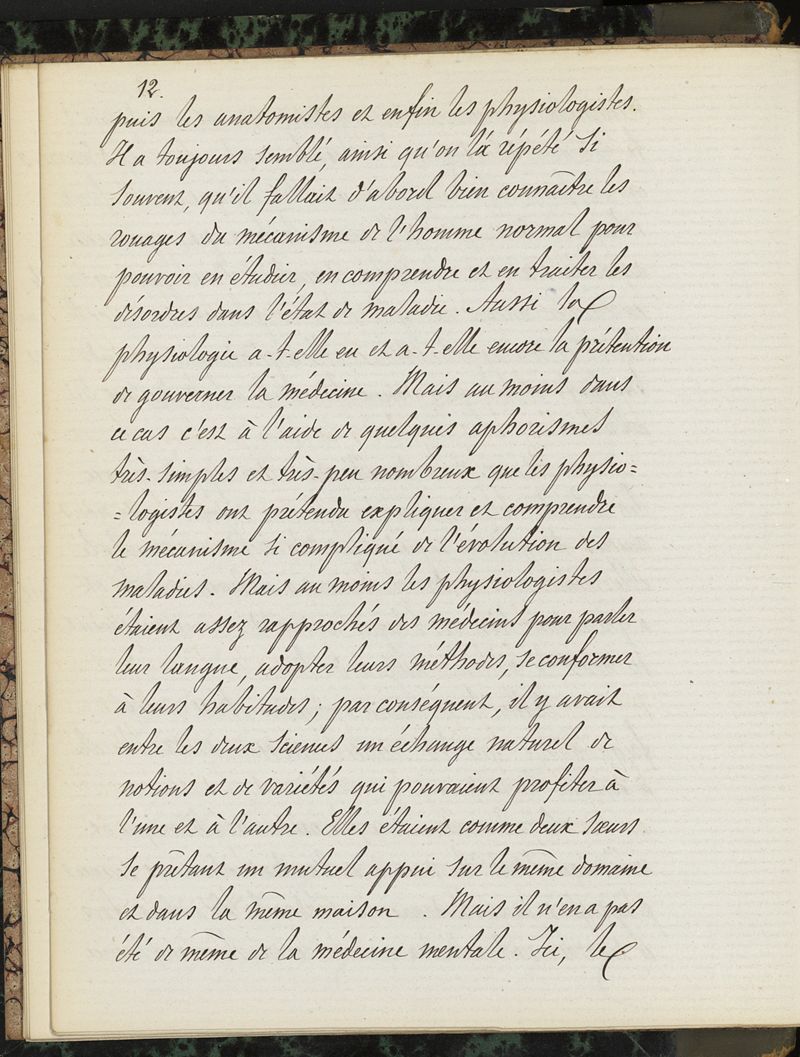 12.
puis les anatomistes et enfin les physiologistes.
Il a toujours semblé, ainsi qu'on l'a répété si
souvent, qu'il fallait d'abord bien connaître les
rouages du mécanisme de l'homme normal pour
pouvoir en étudier, en comprendre et en traiter les
désordres dans l'état de maladie. Aussi la
physiologie a-t-elle eu et a-t-elle encore la prétention
de gouverner la médecine. Mais au moins dans
ce cas c'est à l'aide de quelques aphorismes
très-simples et très-peu nombreux que les physio=
=logistes ont prétendu expliquer et comprendre
le mécanisme si compliqué de l'évolution des
maladies. Mais au moins les physiologistes
étaient assez rapprochés des médecins pour parler
leur langue, adopter leurs méthodes, se conformer
à leurs habitudes; par conséquent, il y avait
entre les deux sciences un échange naturel de
notions et de variétés qui pouvaient profiter à
l'une et à l'autre. Elles étaient comme deux sœurs
se prêtant un mutuel appui sur le même domaine
et dans la même maison. Mais il n'en a pas
été de même de la médecine mentale. Ici, le